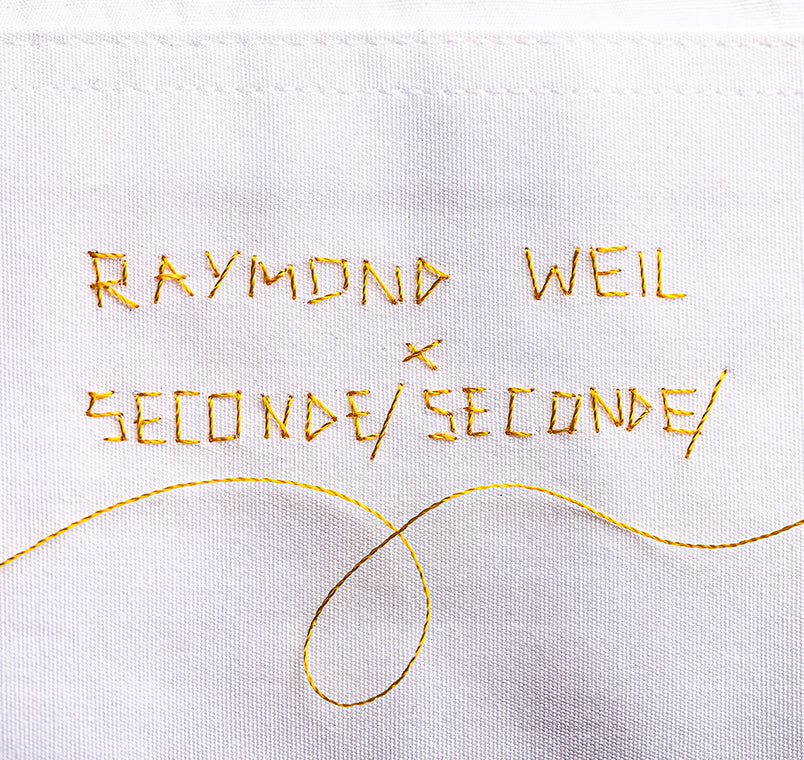 RAYMOND WEIL
x
SECONDE/SECONDE/